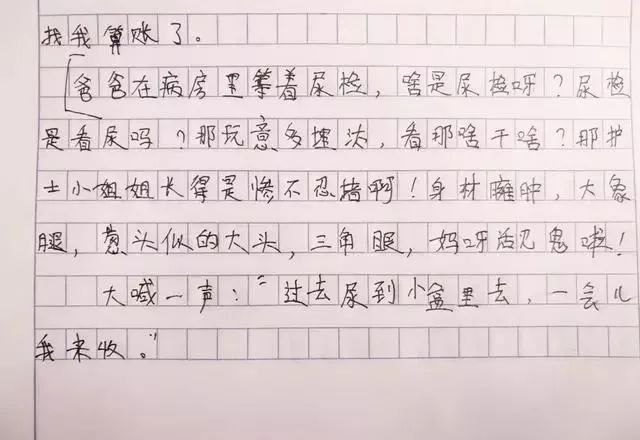 找我算账了。
爸爸在病房里等着尿检，啥是尿检呀？尿检
是看尿吗？那玩意多埋汰，看那啥干啥？那护
士小姐姐长得是惨不忍睹啊！身材臃肿，大象
腿，葱头似的大头，三角眼，妈呀活见鬼啦！
大喊一声：“过去尿到小盆里去，一会儿
我来收。”